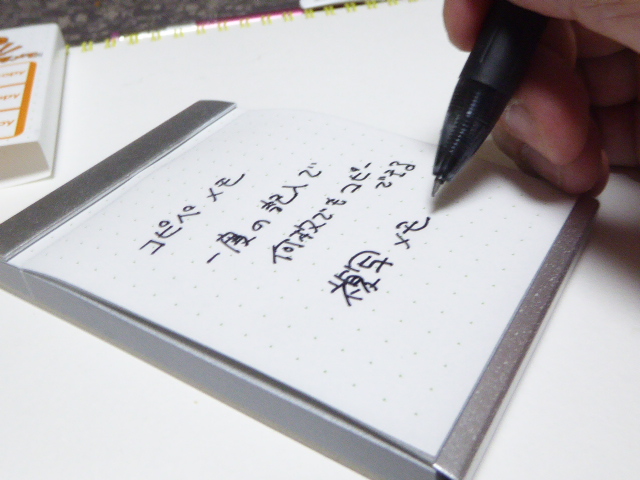 コピペメモ
一度の記入で
何枚でもコピ
複写メモ